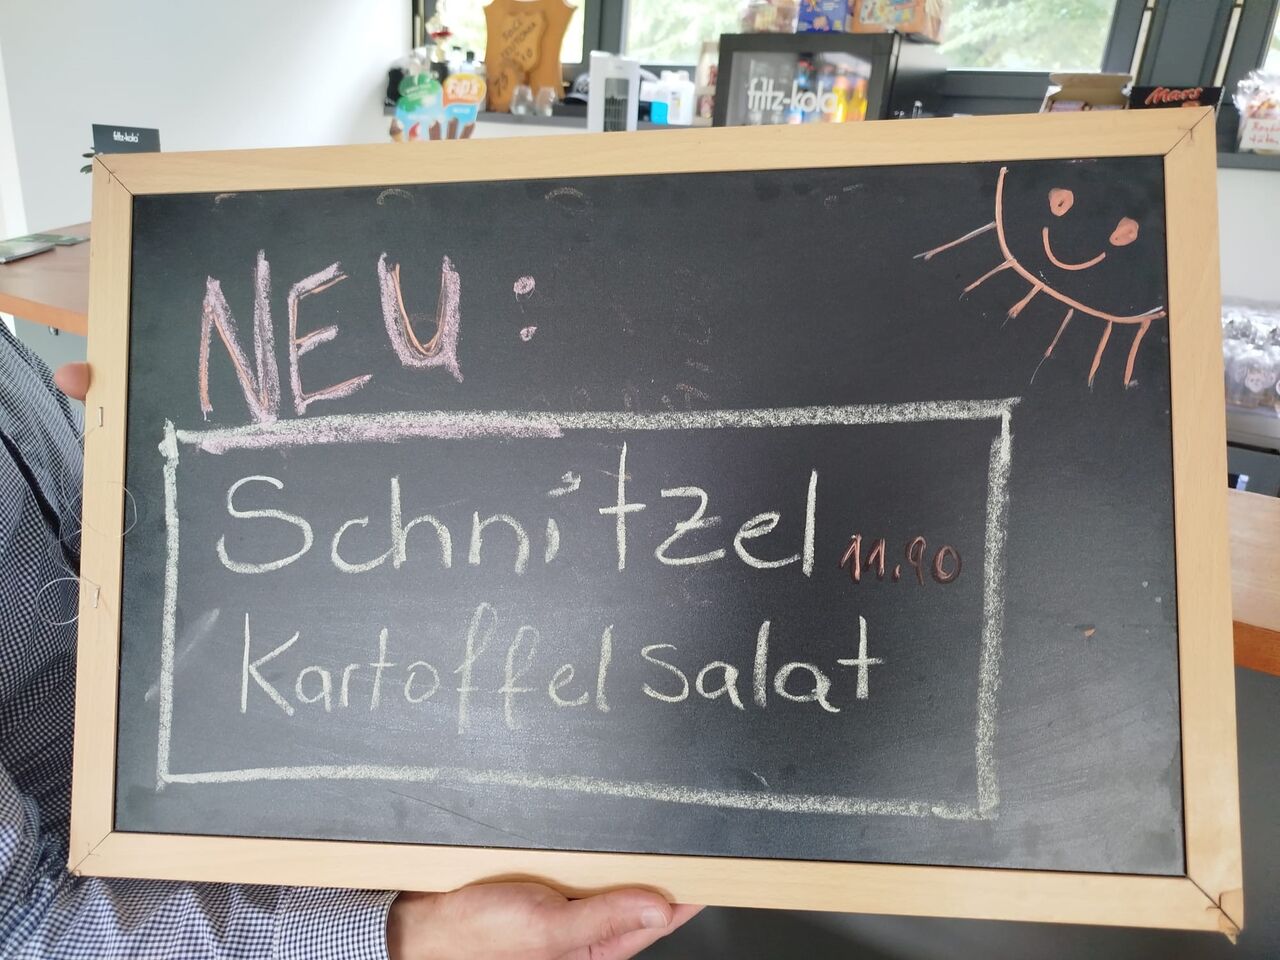 fritz-kola
fritz-kola
Mars
NEU:
Schnitzel 11.90
Kartoffelsalat